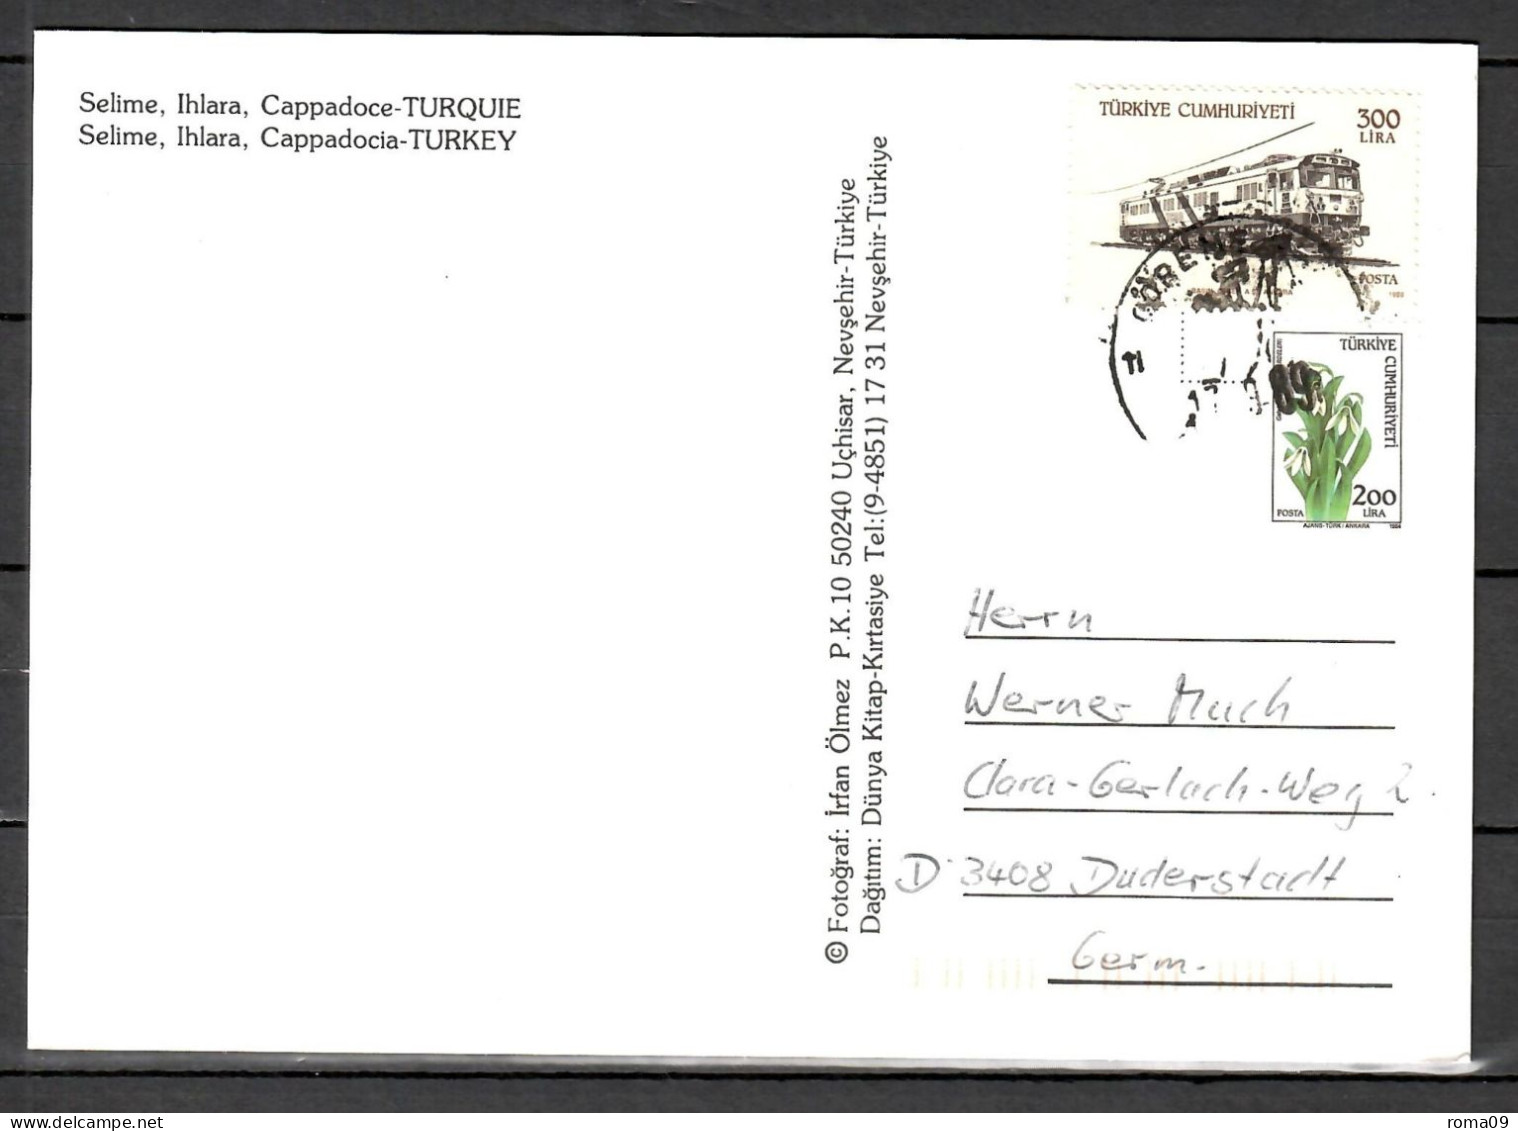 Selime, Ihlara, Cappadoce-TURQUIE
Selime, Ihlara, Cappadocia-TURKEY
© Fotoğraf: İrfan Ölmez P.K.10 50240 Uçhisar, Nevşehir-Türkiye
Dağıtım: Dünya Kitap-Kırtasiye Tel:(9-4851) 17 31 Nevşehir-Türkiye
TÜRKİYE CUMHURİYETİ
300
LİRA
POSTA
1988
GÖREME
89
TÜRKİYE
CUMHURİYETİ
200
LİRA
POSTA
AJANS-TÜRK / ANKARA
Herrn
Werner Much
Clara-Gerlach-Weg 2.
D 3408 Duderstadt
Germ.
delcampe.net
roma09